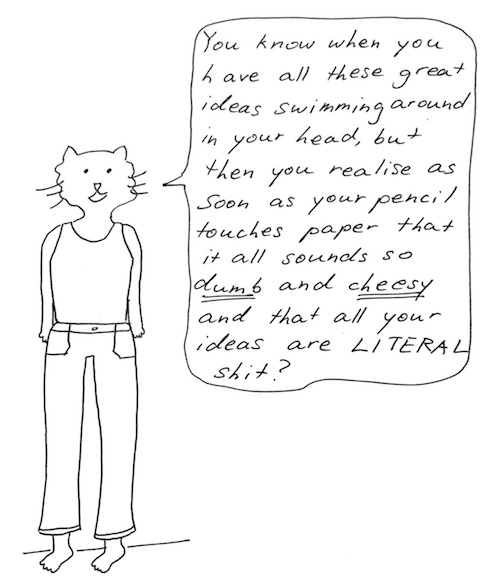 You know when you
have all these great
ideas swimming around
in your head, but
then you realise as
soon as your pencil
touches paper that
it all sounds so
dumb and cheesy
and that all your
ideas are LITERAL
shit?